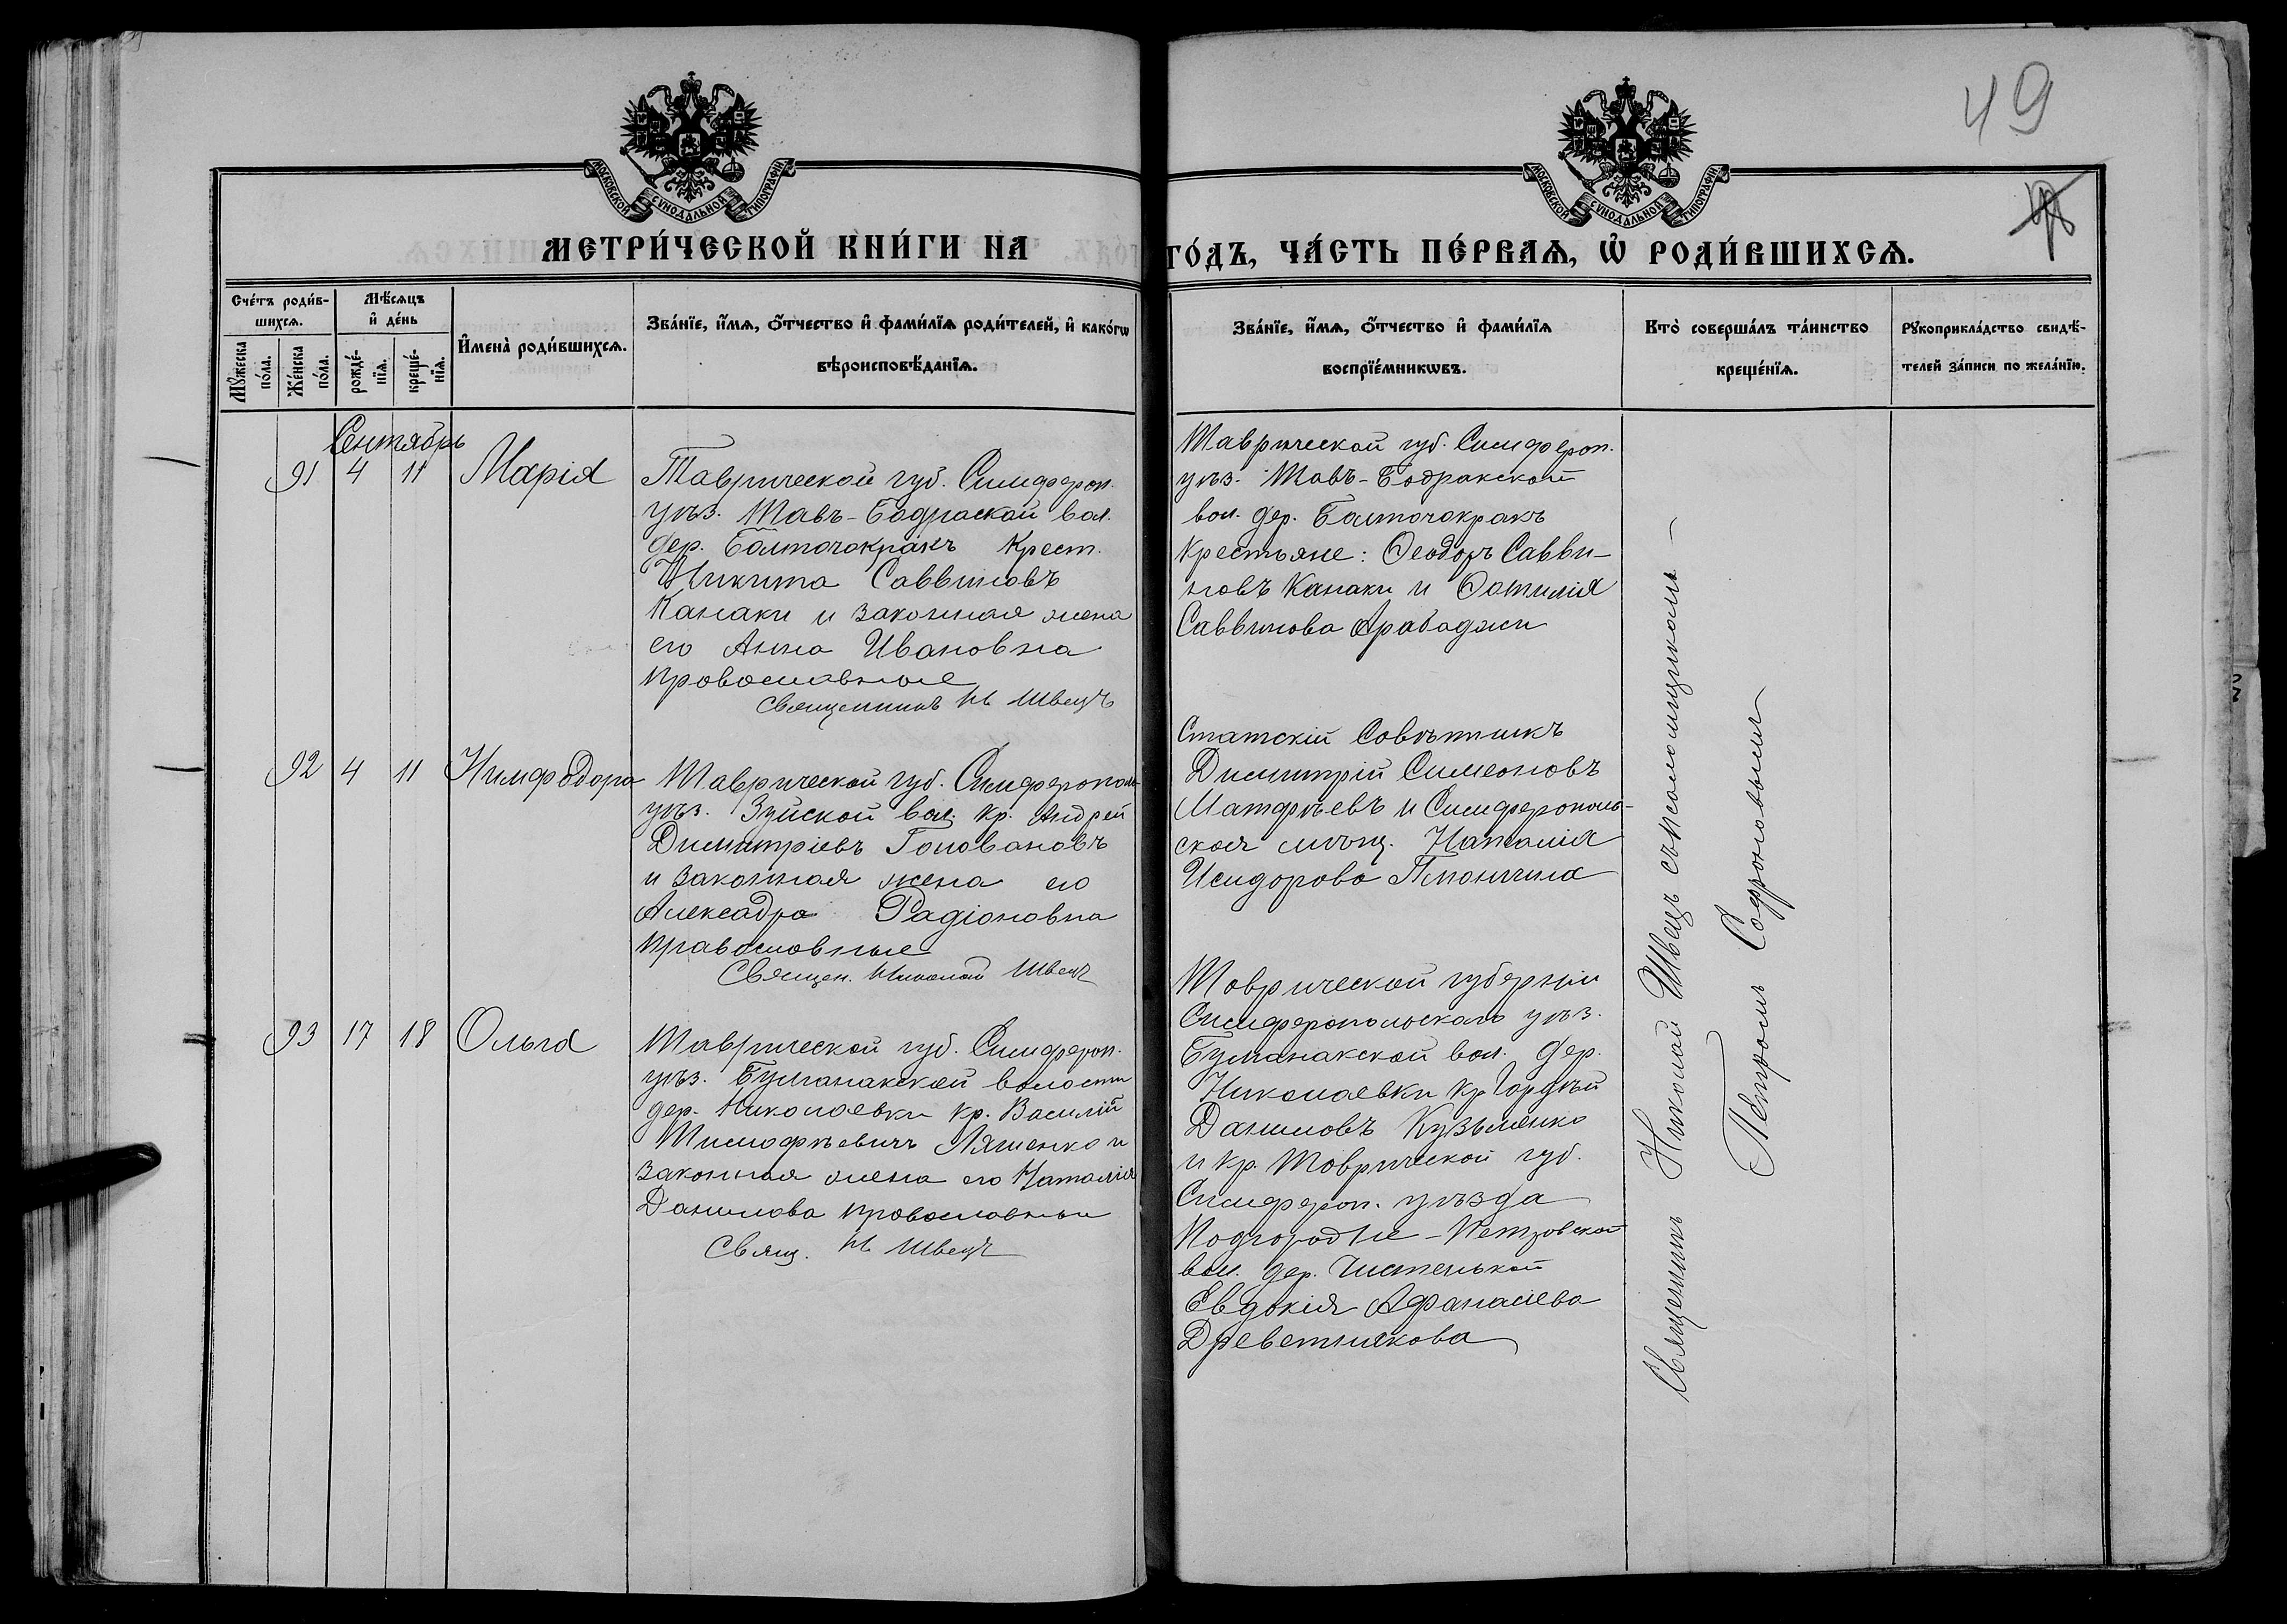 49
МОСКОВСКОЙ СѴНОДАЛЬНОЙ ТИПОГРАФІИ
МОСКОВСКОЙ СѴНОДАЛЬНОЙ ТИПОГРАФІИ
МЕТРИ́ЧЕСКОЙ КНИ́ГИ НА
ГО́ДЪ, ЧА́СТЬ ПЕ́РВАѦ, Ѡ҆ РОДИ́ВШИХСѦ.
Сче́тъ роди́в-
шихсѧ.
Мꙋ́жеска
по́ла.
Же́нска
по́ла.
Мѣ́сѧцъ
и҆ де́нь
рожде́-
нїѧ.
креще́-
нїѧ.
И҆мена̀ роди́вшихсѧ.
Зва́нїе, и҆́мѧ, ѻ҆́тчество и҆ фами́лїѧ роди́телей, и҆ како́гѡ
вѣроисповѣ́данїѧ.
Зва́нїе, и҆́мѧ, ѻ҆́тчество и҆ фами́лїѧ
воспрїе́мникѡвъ.
Кто̀ соверша́лъ та́инство
креще́нїѧ.
Рꙋкоприкла́дство свидѣ́-
телей за́писи по жела́нїю.
Сентябрь
91 4 11 Марія
Таврической губ. Симфероп.
уѣз. Тавъ-Бодраской вол.
дер. Балточокракъ Крест.
Никита Саввиновъ
Канаки и законная жена
его Анна Ивановна
православные
Священникъ Н Швецъ
Таврической губ. Симфероп.
уѣз. Тавъ-Бодракской
вол. дер. Балточокракъ
крестьяне: Ѳеодоръ Савви-
новъ Канаки и Ѳотилія
Саввинова Арабаджи
92 4 11 Нимфодора
Таврической губ. Симферополь
уѣз. Зуйской вол. кр. Андрей
Димитріевъ Головановъ
и законная жена его
Алексадра Радіоновна
православные
Священ. Николай Швецъ
Статскій Совѣтникъ
Димитрій Симеоновъ
Матфѣевъ и Симферополь-
ская мѣщ. Наталія
Исидорова
93 17 18 Ольга
Таврической губ. Симфероп.
уѣз. Булганакской волости
дер. Николаевки кр. Василій
Тимофѣевичъ Ляшенко и
законная жена его Наталія
Данилова православные
Свящ. Н Швецъ
Таврической губерніи
Симферопольскаго уѣз.
Булганакской вол. дер.
Николаевки кр Гордѣй
Даниловъ Кузьменко
и кр. Таврической губ.
Симфероп. уѣзда
Подгородне-Петровской
вол. дер. Чистенькой
Евдокія Афанасіева
Древетнякова
Священникъ Николай Швецъ съ псаломщикомъ
Петромъ Софроновымъ